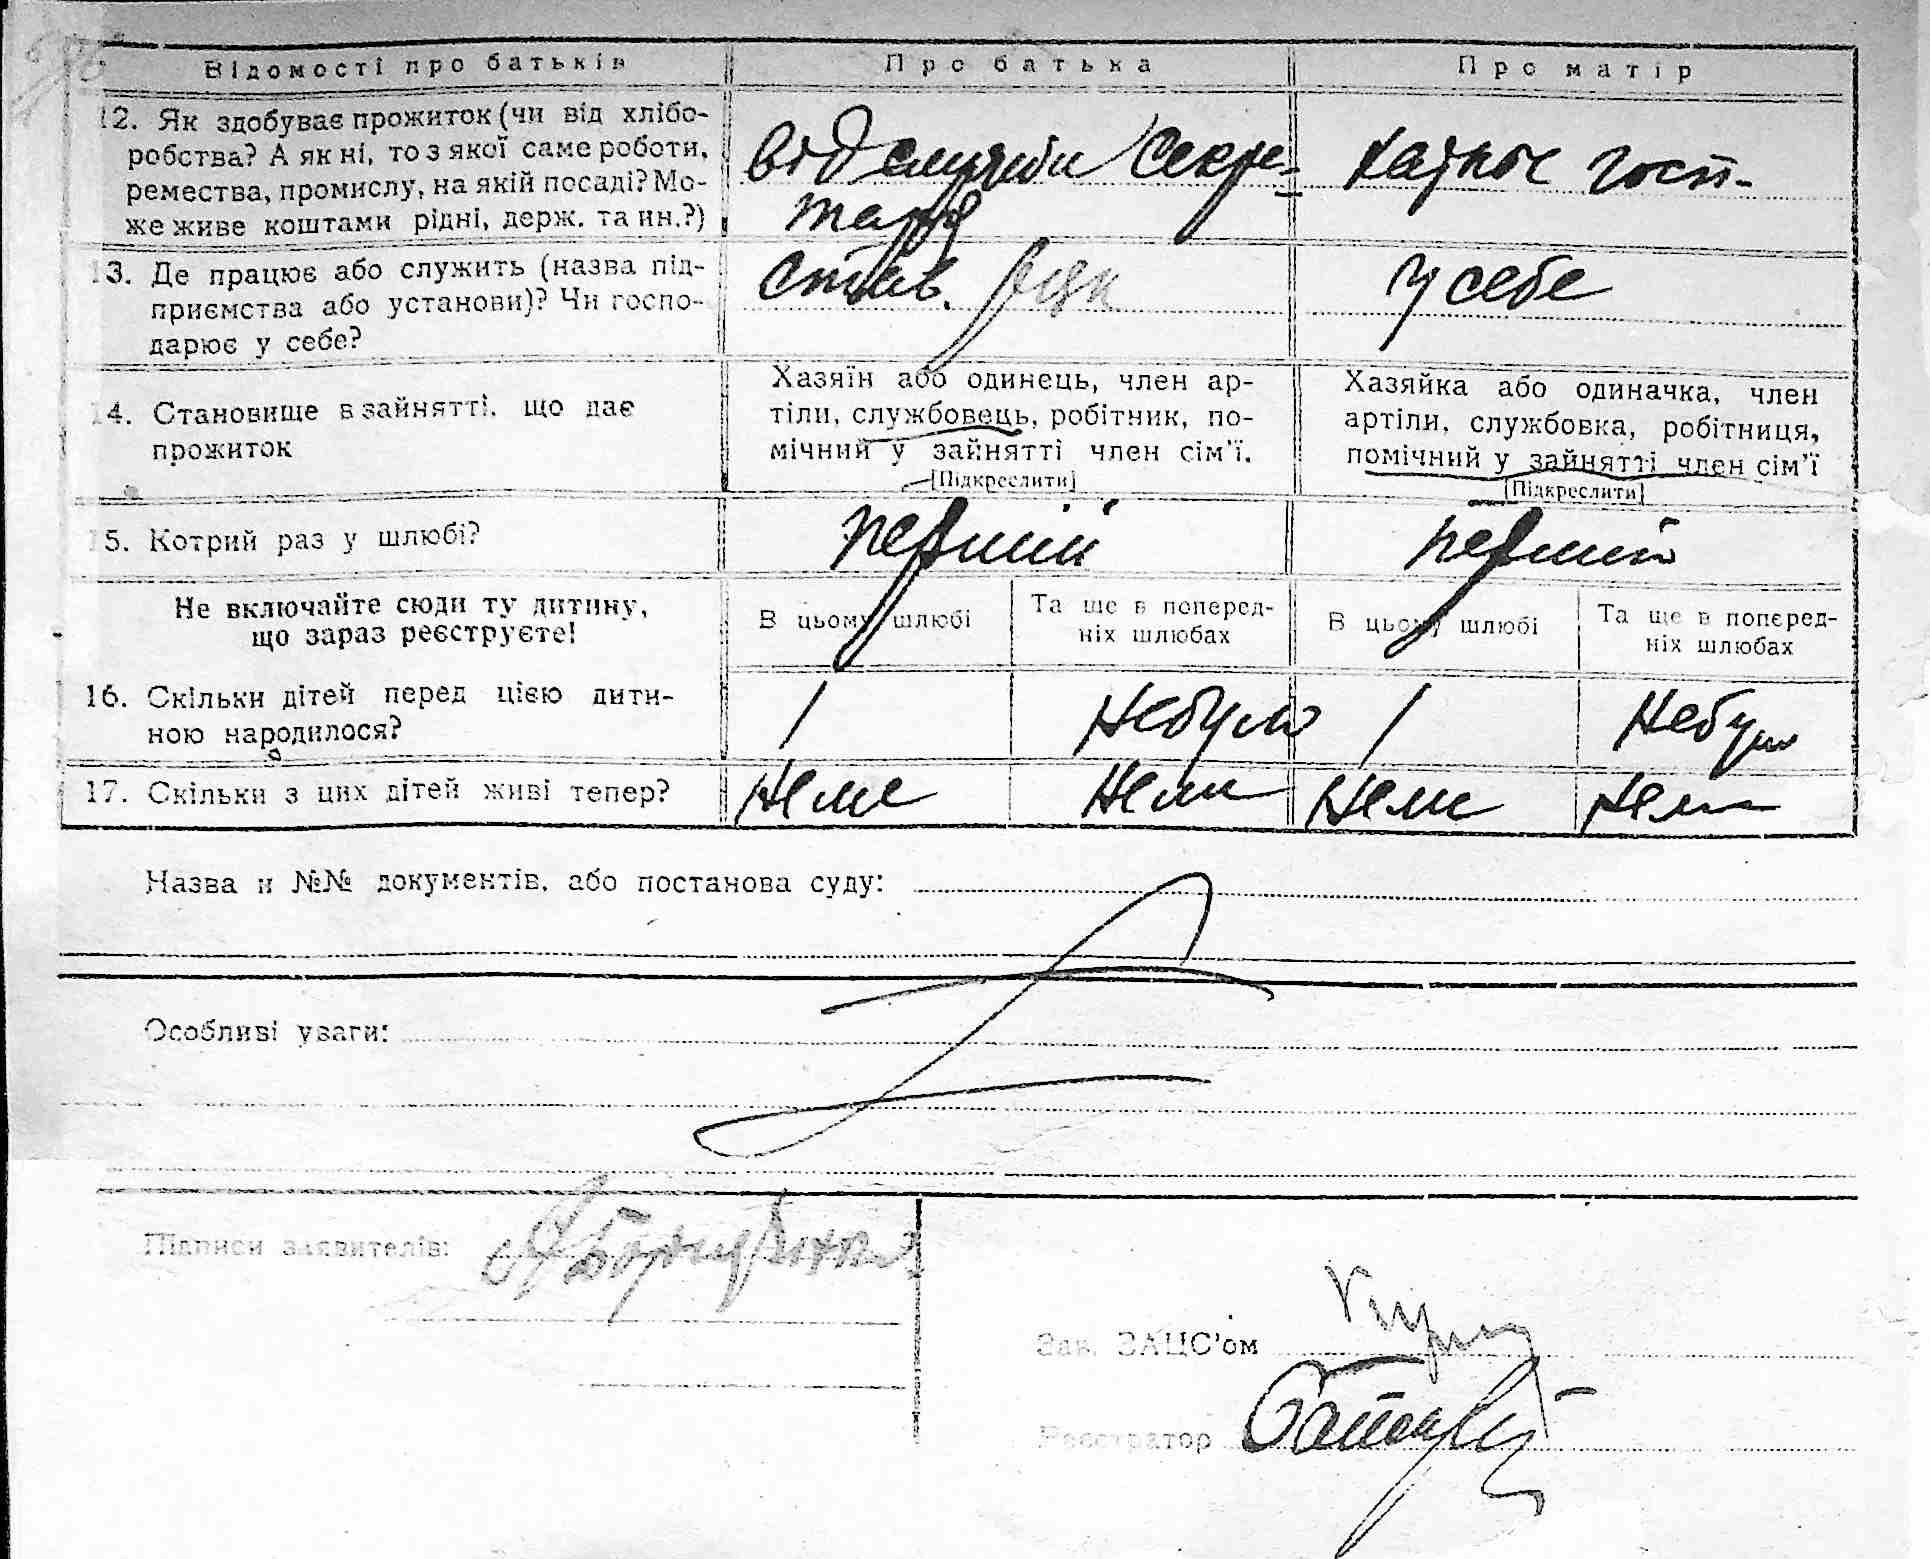 Відомості про батьків
Про батька
Про матір
12. Як здобуває прожиток (чи від хлібо-
робства? А як ні, то з якої саме роботи,
ремества, промислу, на якій посаді? Мо-
же живе коштами рідні, держ. та ин.?)
від служби Секре-
таря
хатнє госп-
13. Де працює або служить (назва під-
приємства або установи)? Чи госпо-
дарює у себе?
Став.
у себе
14. Становище в зайнятті, що дає
прожиток
Хазяїн або одинець, член ар-
тіли, службовець, робітник, по-
мічний у зайнятті член сім'ї.
[Підкреслити]
Хазяйка або одиначка, член
артіли, службовка, робітниця,
помічний у зайнятті член сім'ї
[Підкреслити]
15. Котрий раз у шлюбі?
перший
перший
Не включайте сюди ту дитину,
що зараз реєструєте!
В цьому шлюбі
Та ще в поперед-
ніх шлюбах
В цьому шлюбі
Та ще в поперед-
ніх шлюбах
16. Скільки дітей перед цією дити-
ною народилося?
1
небуло
1
небуло
17. Скільки з цих дітей живі тепер?
нема
нема
нема
нема
Назва и №№ документів, або постанова суду:
Особливі уваги:
Підписи заявителів:
Зав. ЗАЦС'ом
Реєстратор